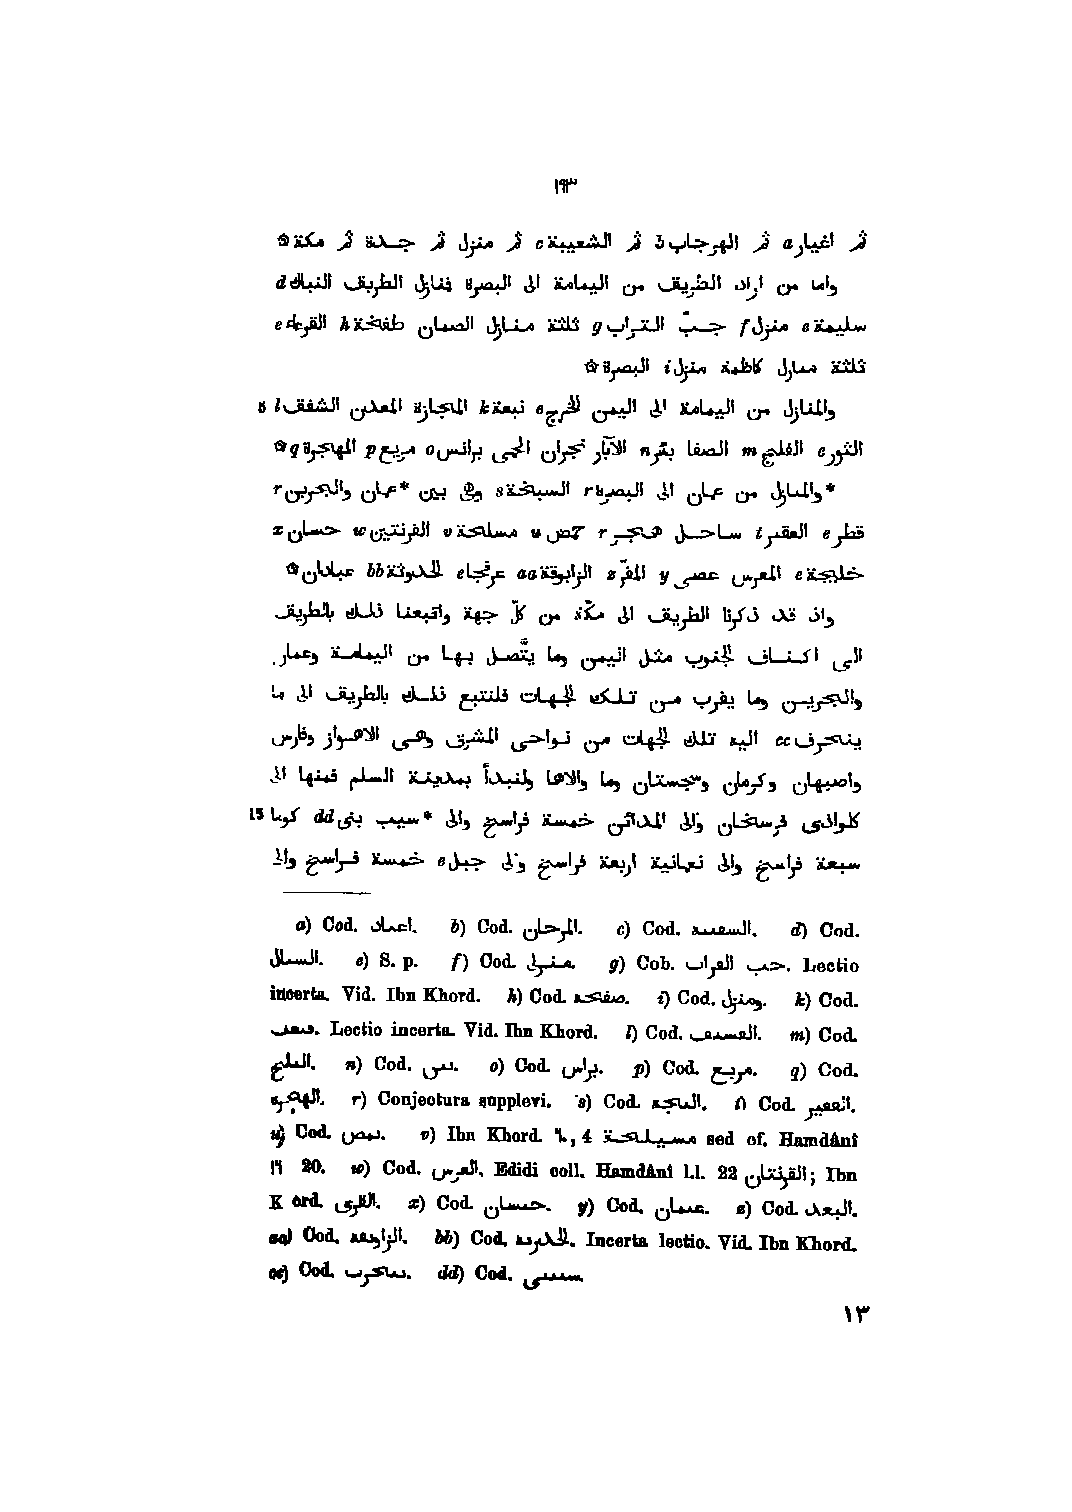 ١٩٣
ثم اغيار a ثم الهرجاب b ثم الشعيبة c ثم منزل ثم جدة ثم مكة ۞
واما من اراد الطريق من اليمامة الى البصرة فنازل الطريق النباك d
سليمة e منزل f جبّ التراب g ثلثة منازل الصمان طفخة h القرعاء e
ثلثة منازل كاظمة منزل i البصرة ۞
والمنازل من اليمامة الى اليمن الخرج e نبعة k المجازة المعدن الشفق l 5
الثور e الفلج m الصفا بئر n الآبار نجران الحمى برانس o مريع p المهجرة q ۞
*والمنازل من عمان الى البصرة r السبخة s وهى بين *عمان والبحرين r
قطر e العقير t ساحل هجر r حمض u مسلحة v القرنتين w حسان x
خليجة e المعرس عصى y المقرّ z الزابوقة aa عرفجا e الحدوثة bb عبادان ۞
واذ قد ذكرنا الطريق الى مكّة من كلّ جهة واتبعنا ذلك بالطريق
الى اكناف الجنوب مثل اليمن وما يتّصل بها من اليمامة وعمان
والبحرين وما يقرب من تلك الجهات فلنتبع ذلك بالطريق الى ما
ينحرف cc اليه تلك الجهات من نواحى المشرق وهى الاهواز وفارس
واصبهان وكرمان وسجستان وما والاها ولنبدأ بمدينة السلم فمنها الى
كلواذى فرسخان والى المدائن خمسة فراسخ والى *سيب بنى dd كوما 15
سبعة فراسخ والى نعمانية اربعة فراسخ والى جبل e خمسة فراسخ والى
a) Cod. اعماد. b) Cod. المرحان. c) Cod. السعيبه. d) Cod.
السال. e) S. p. f) Cod. منزل. g) Cob. حب العراب. Lectio
incerta. Vid. Ibn Khord. h) Cod. صفحه. i) Cod. ومنزل. k) Cod.
Lectio incerta. Vid. Ibn Khord. l) Cod. m) Cod.
الفلح. n) Cod. o) Cod. براس. p) Cod. مريع. q) Cod.
الهجره. r) Conjectura supplevi. s) Cod. t) Cod. العفير.
u) Cod. v) Ibn Khord. ٦٠, 4 مسيلحة sed cf. Hamdânî
20. w) Cod. العرس. Edidi coll. Hamdânî l.l. 22 القرنتان; Ibn
Khord. القرى. x) Cod. حسان. y) Cod. عسان. z) Cod. البعد.
aa) Cod. الراوبعه. bb) Cod. Incerta lectio. Vid. Ibn Khord.
cc) Cod. dd) Cod.
١٣